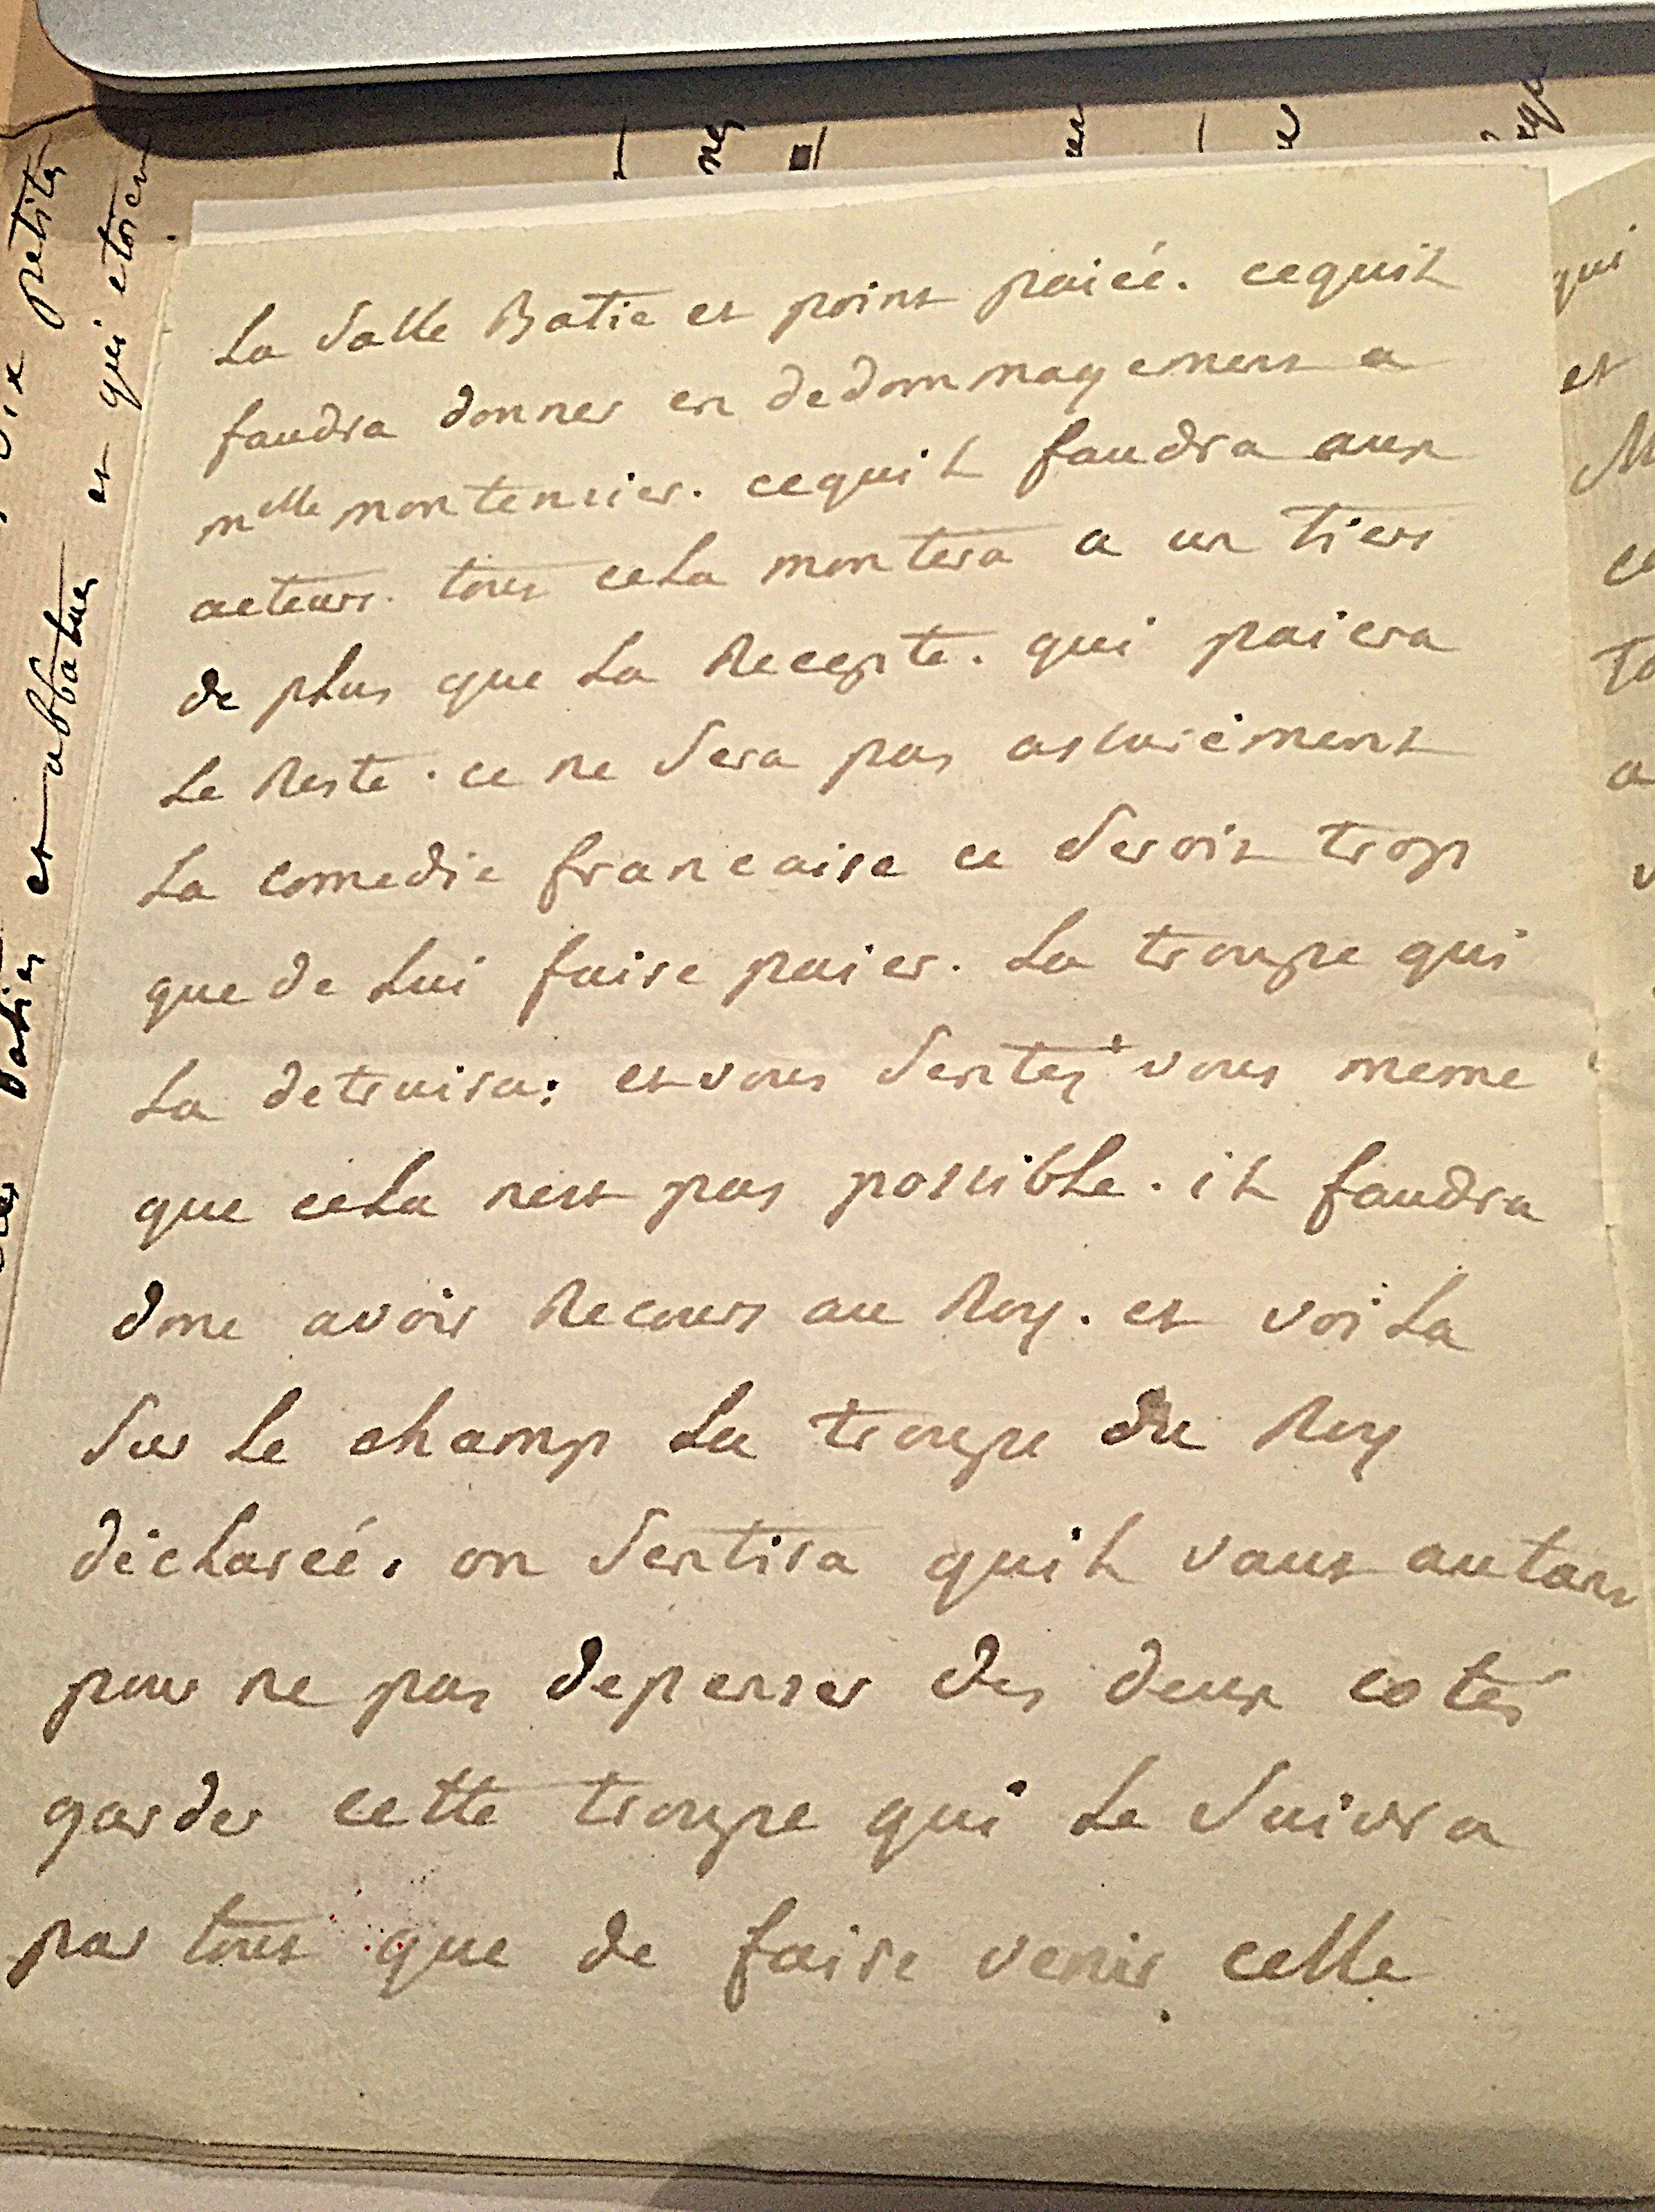 La Salle Batie et point paieé. cequil
faudra donner en dedommagement a
melle montensier. cequil faudra aux
acteurs. tout cela montera a un tiers
de plus que la Recepte. qui paiera
le Reste. ce ne Sera pas assurément
la comedie francaise ce Seroit trop
que de lui faire paier. la troupe qui
la detruira: et vous Sentés vous meme
que cela nest pas possible. il faudra
donc avoir Recours au Roy. et voila
Sur le champ la troupe du Roy
déclareé. on Sentira quil vaut autant
pour ne pas depenser des deux cotés
garder cette troupe qui le Suivra
par tout que de faire venir celle
petites
et qui etoient
et abbatues
qui
et